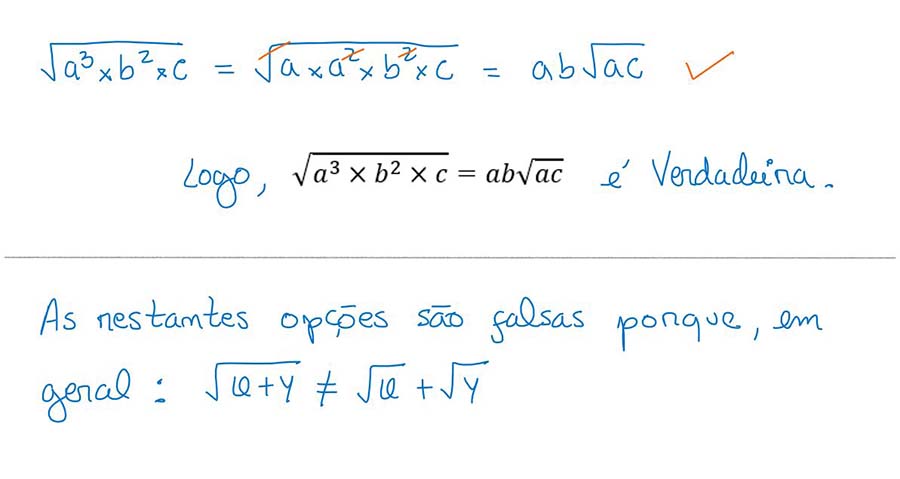 √(a³ × b² × c) = √(a × a² × b² × c) = ab√(ac) ✓
Logo, √(a³ × b² × c) = ab√(ac) é Verdadeira.
As restantes opções são falsas porque, em
geral: √(x+y) ≠ √x + √y